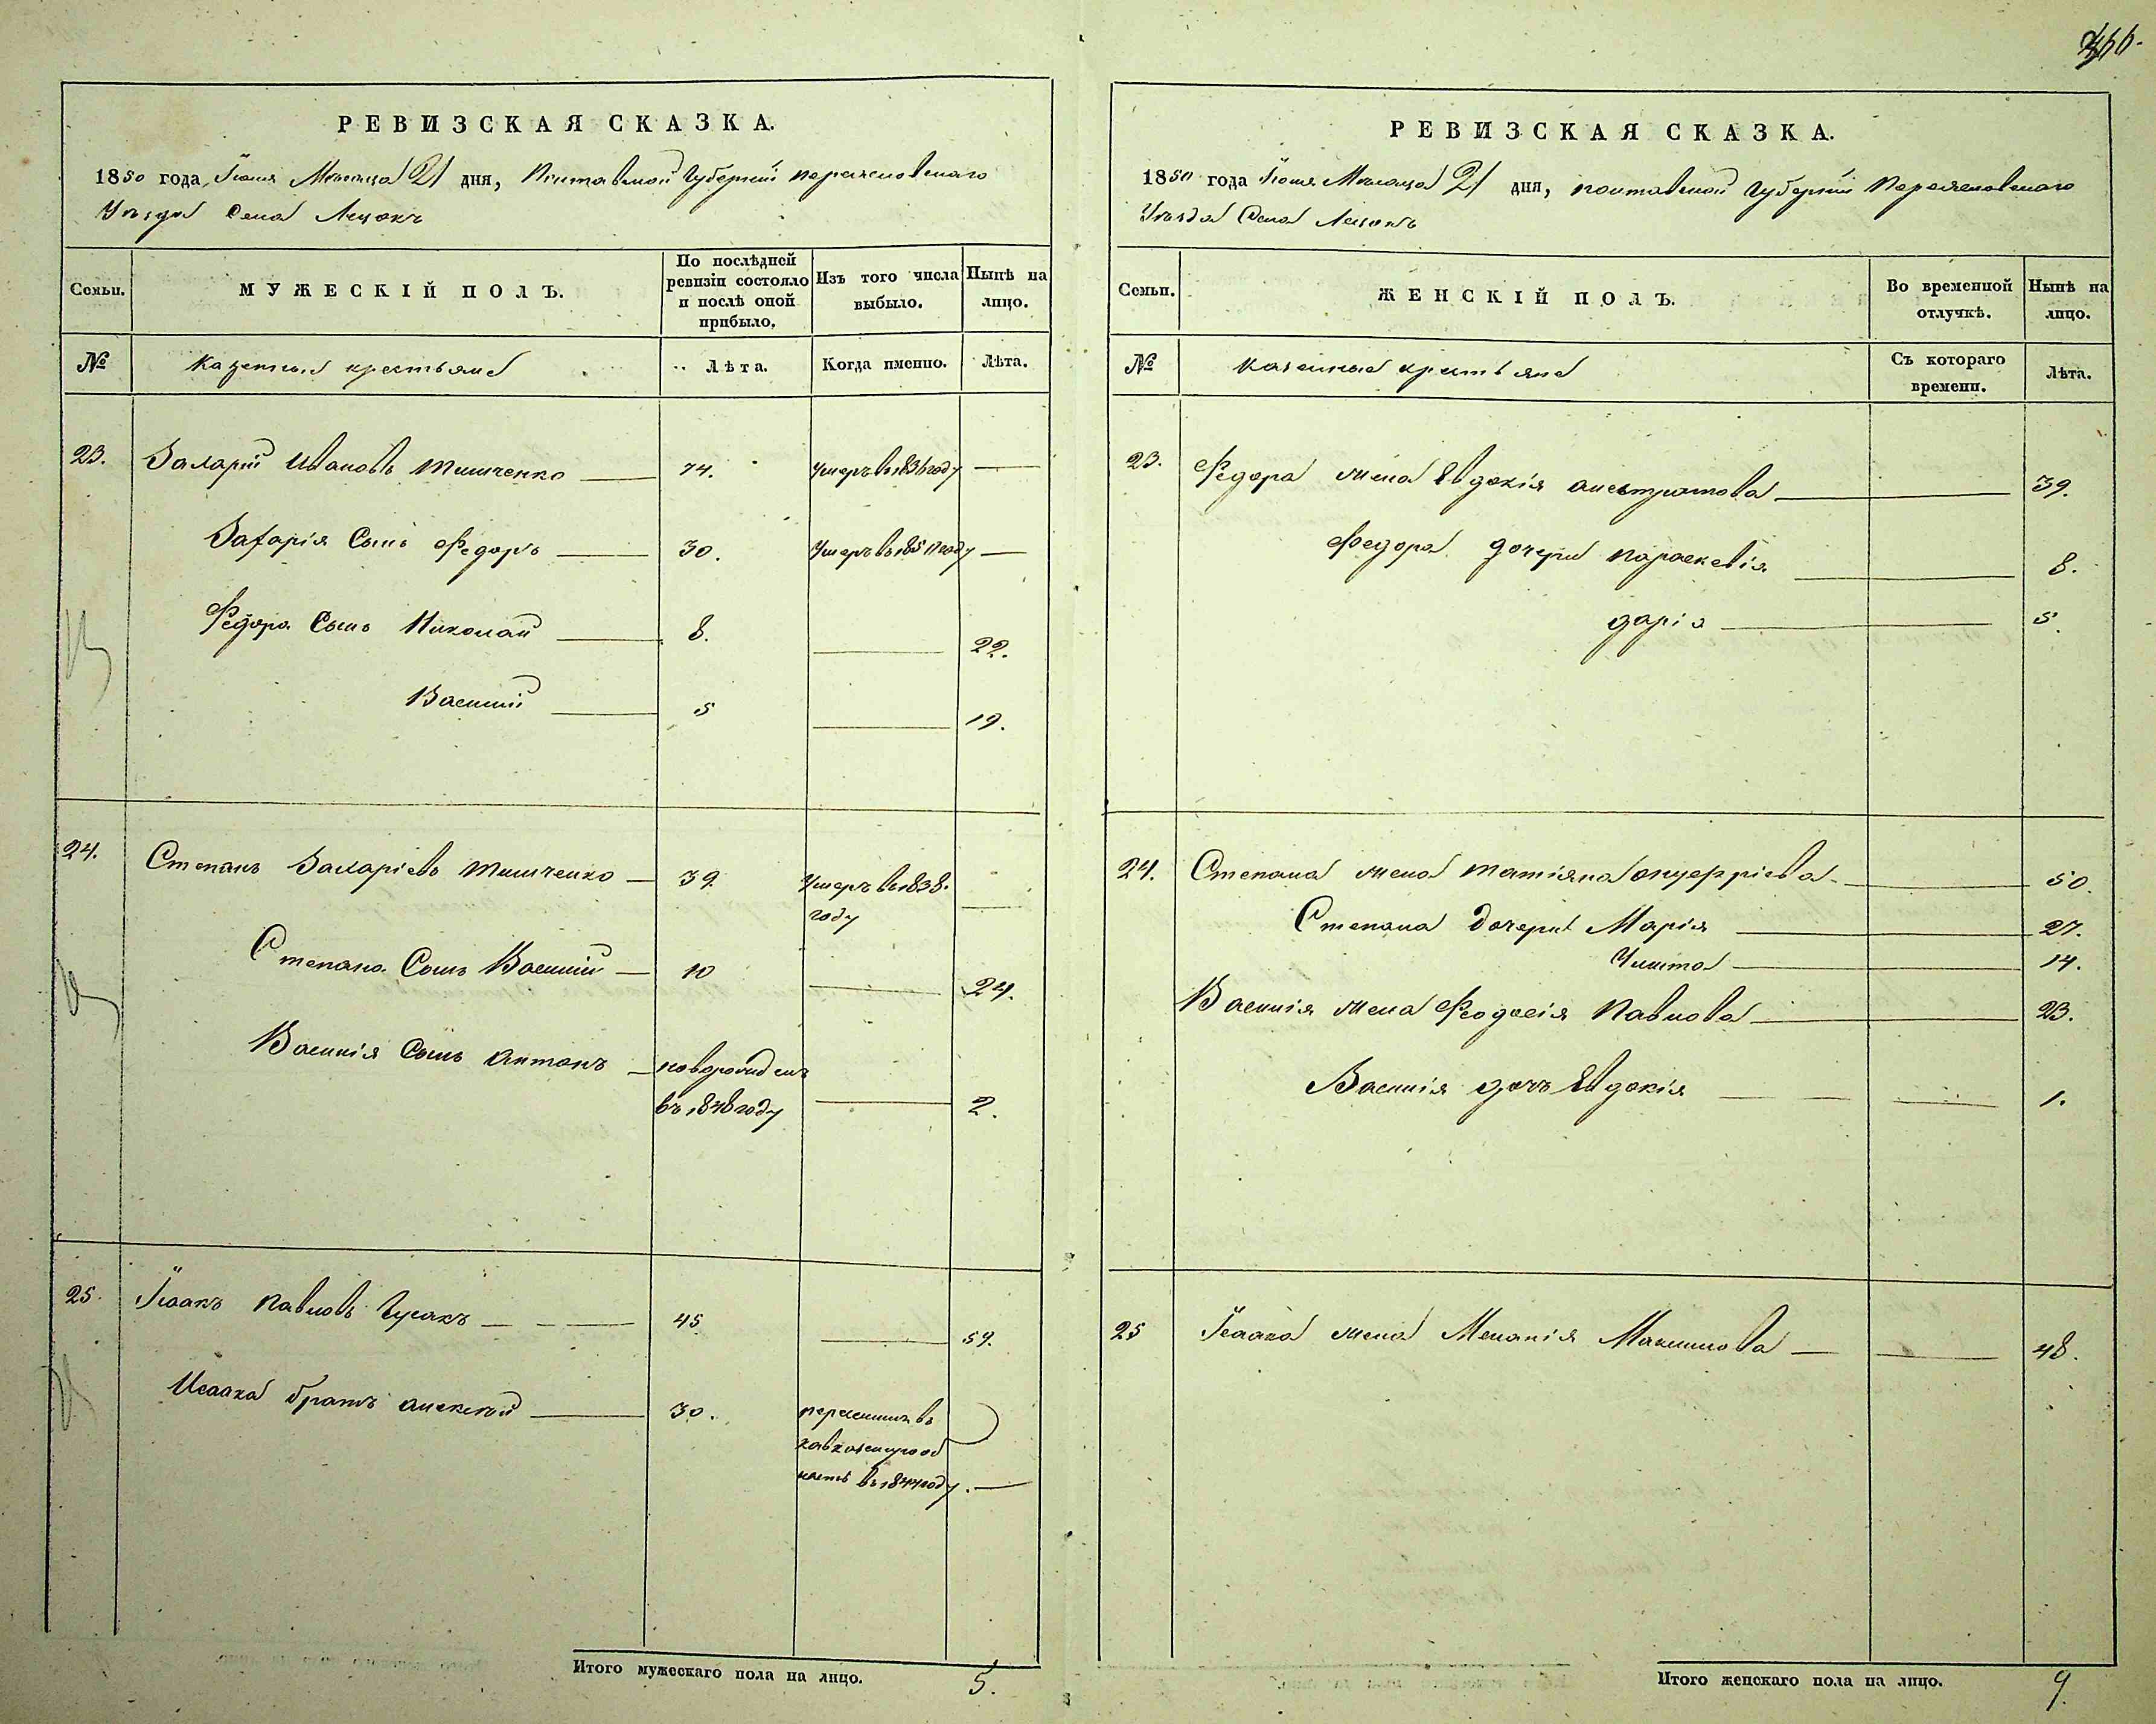 РЕВИЗСКАЯ СКАЗКА.
1850 года, Іюня Мѣсяца 21 дня, Полтавской Губерніи Переяславскаго
Уѣзда Села Лецокъ
Семьи.
МУЖЕСКІЙ ПОЛЪ.
По послѣдней ревизіи состояло и послѣ оной прибыло.
Изъ того числа выбыло.
Нынѣ на лицо.
№
Казенные крестьяне
Лѣта.
Когда именно.
Лѣта.
23. Захарій Ивановъ Тимченко 74. Умеръ въ 1836 году
Захарія Сынъ Федоръ 30. Умеръ въ году
Федора Сынъ Николай 8. 22.
Василій 5 19.
24. Степанъ Захаріевъ Тимченко 39. Умеръ въ 1838.
году
Степана Сынъ Василій 10 24.
Василія Сынъ Антонъ новорожденъ
въ 1848 году 2.
25. Ісаакъ Павловъ Гусакъ 45 59.
Исаака братъ Алексѣй 30. переселился въ
кавказскую об
ласть въ 1844 году.
Итого мужескаго пола на лицо. 5.
РЕВИЗСКАЯ СКАЗКА.
1850 года Іюня Мѣсяца 21 дня, Полтавской Губерніи Переяславскаго
Уѣзда Села Лецокъ
Семьи.
ЖЕНСКІЙ ПОЛЪ.
Во временной отлучкѣ.
Нынѣ на лицо.
№
Казенные крестьяне
Съ котораго времени.
Лѣта.
23. Федора жена Евдокія 39.
Федора дочери Параскевія 8.
Дарія 5.
24. Степана жена Татіяна Онуфріева 50.
Степана дочери Марія 27.
Улита 14.
Василія жена Феодосія Павлова 23.
Василія дочь Евдокія 1.
25 Ісаака жена Меланія Максимова 48.
Итого женскаго пола на лицо. 9.